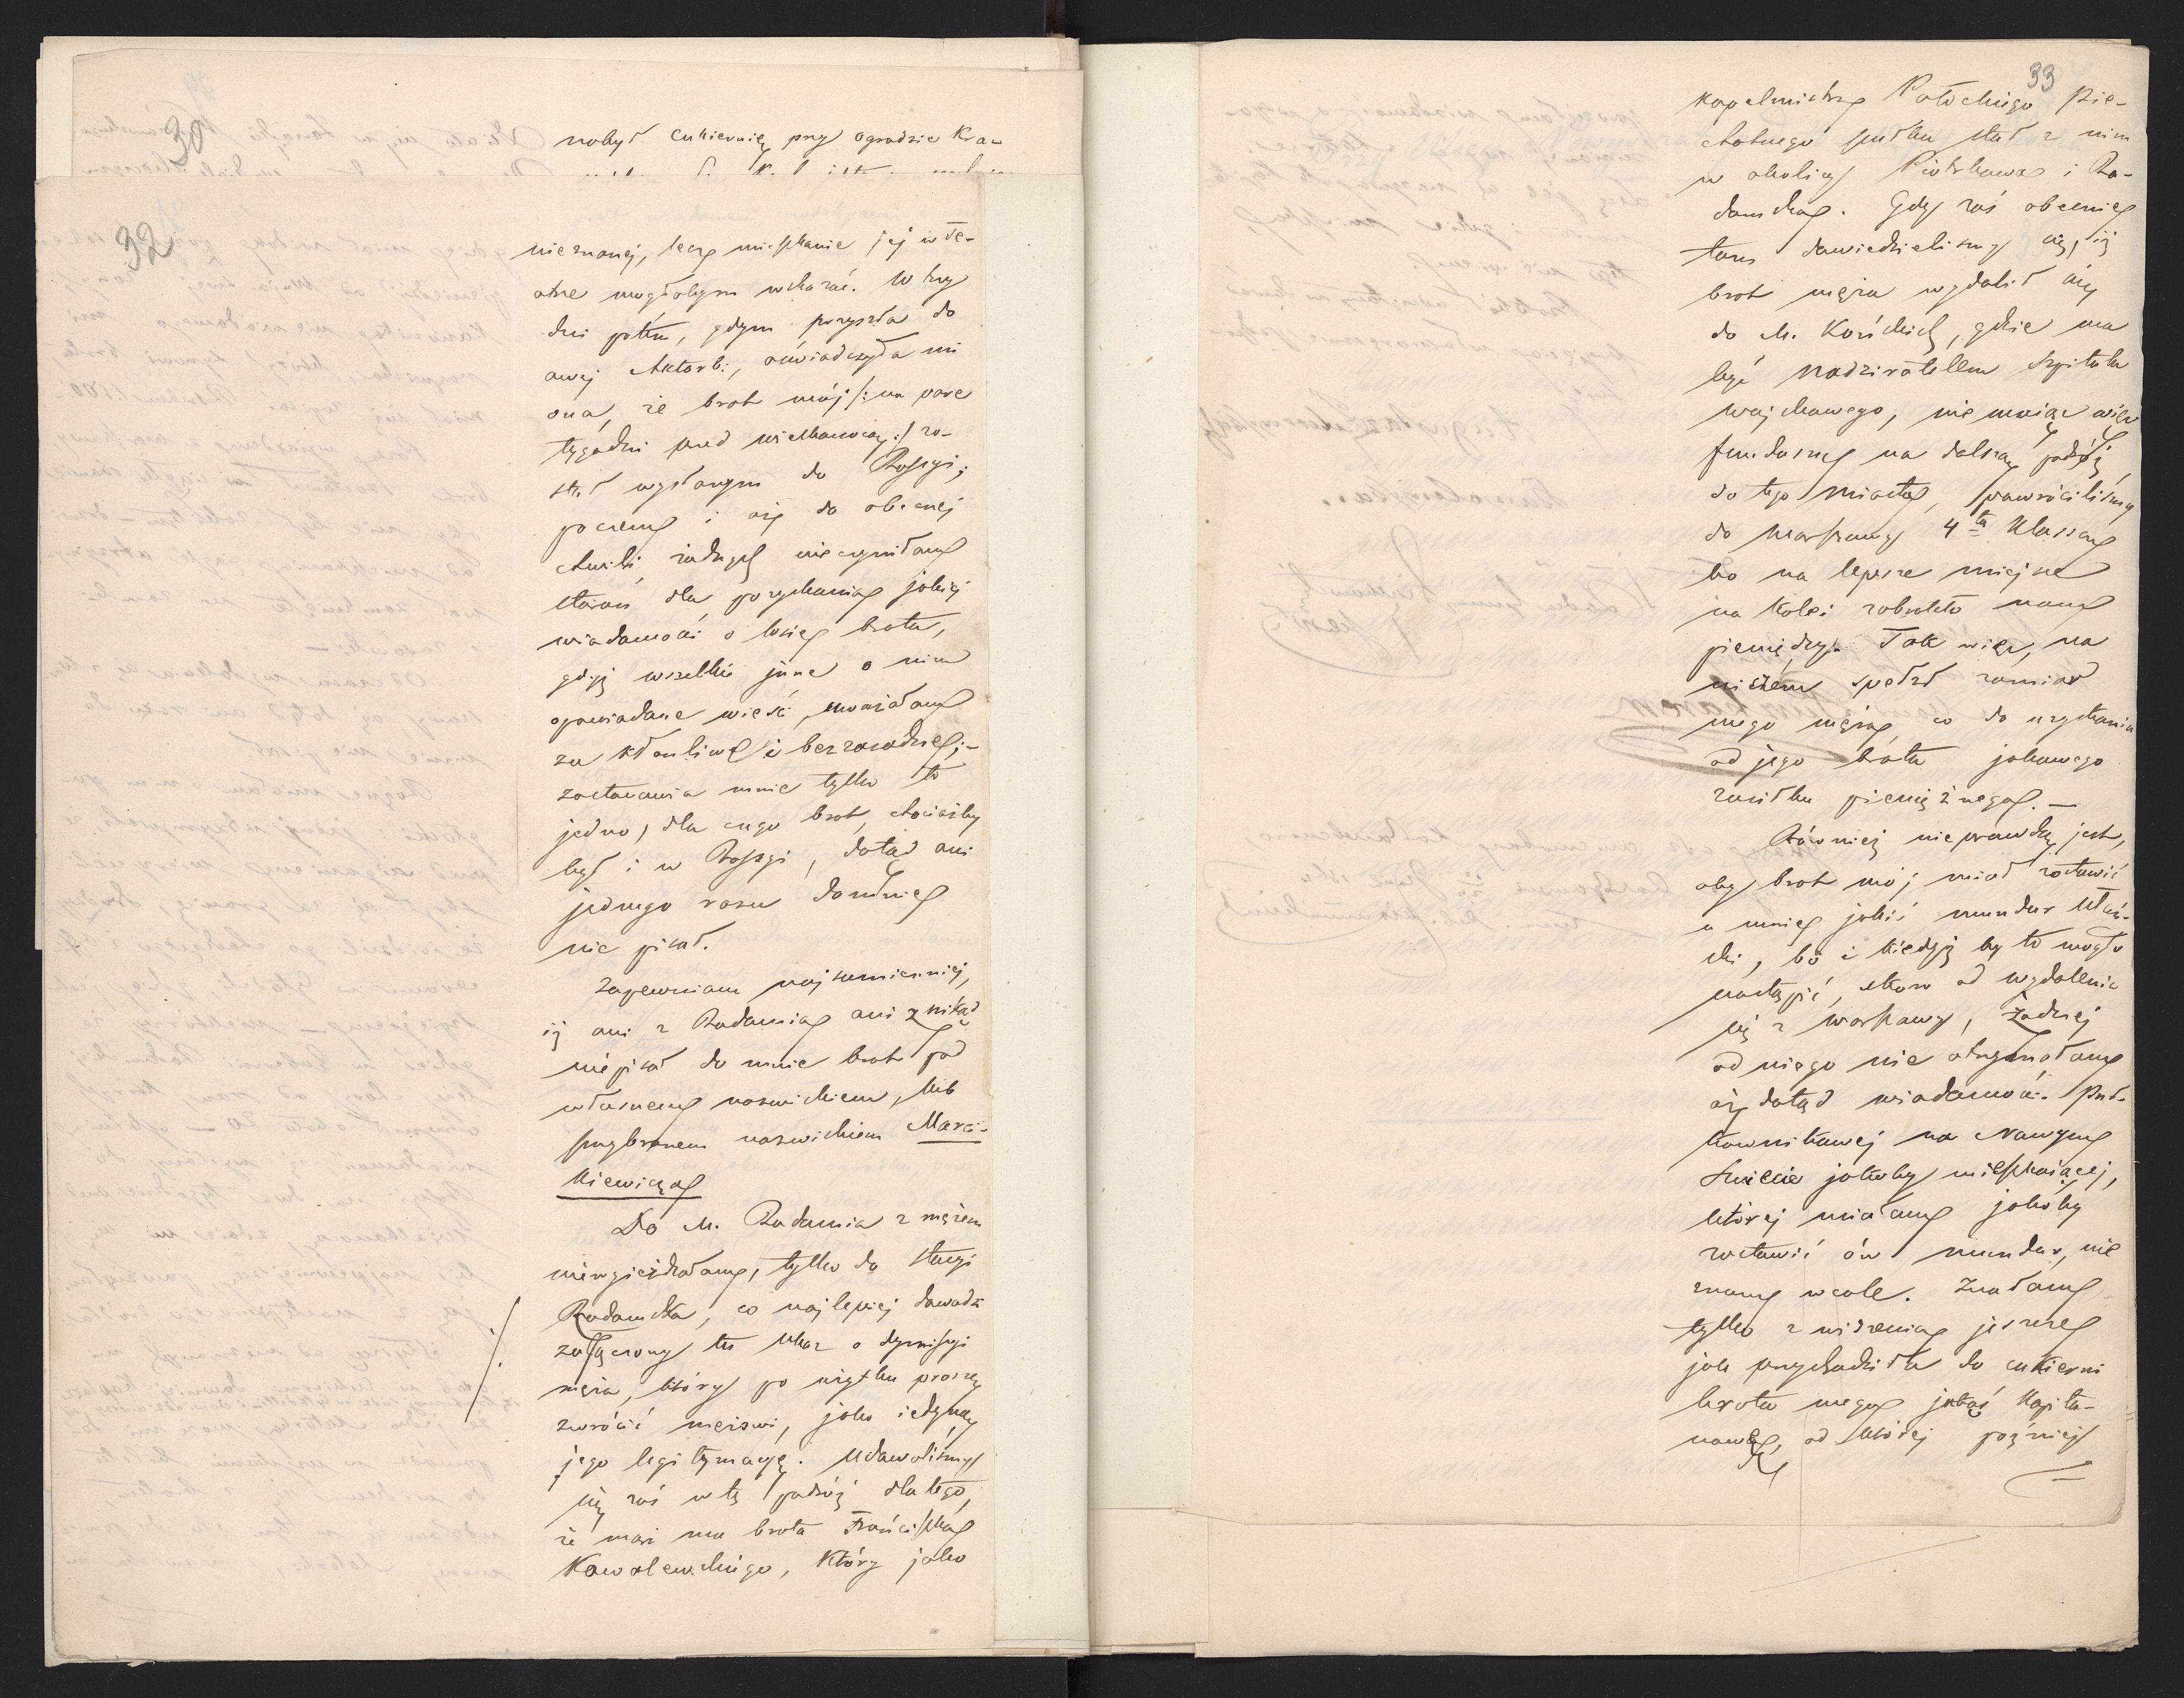 30
nabył cukiernię przy ogrodzie Kra-
32
nieznanej, lecz mieszkanie jej w te-
atrze mogłabym wskazać. W trzy
dni potem, gdym przyszła do
owej Aktorki, oświadczyła mi
ona, że brat mój /: na parę
tygodni przed wielkanocą :/ zo-
stał wysłanym do Rossyi;
poczem i aż do obecnej
chwili, żadnych nieczyniłam
starań dla pozyskania jakiej
wiadomości o losie brata,
gdyż wszelkie inne o nim
opowiadane wieści, uważałam
za kłamliwe i bezzasadne;-
zastanawia mnie tylko to
jedno, dla czego brat, chociażby
był i w Rossyi, dotąd ani
jednego razu do mnie
nie pisał.
Zapewniam najsumienniej,
iż ani z Radomia ani z nikąd
nie pisał do mnie brat pod
własnem nazwiskiem, lub
przybranem nazwiskiem Marci-
kiewicza
Do M. Radomia z mężem
niewyjeżdżałam, tylko do stacyi
Radomska, co najlepiej dowodzi
załączony tu Ukaz o dymisyi
męża, który po użytku proszę
zwrócić mężowi, jako jedyną
jego legitymacyę. Udawaliśmy
się zaś w tę podróż dla tego,
że mąż ma brata Franciszka
Kowalewskiego, który jako
33
kapelmistrz Połockiego pie-
chotnego pułku stał z nim
w okolicy Piotrkowa i Ra-
domska. Gdy zaś obecnie
tam dowiedzieliśmy się, iż
brat męża wydalił się
do M. Końskich, gdzie ma
być nadziratelem Szpitala
wojskowego, nie mając więc
funduszu na dalszą podróż
do tego miasta, powróciliśmy
do Warszawy 4tą klassą
bo na lepsze miejsce
na kolei zabrakło nam
pieniędzy. Tak więc, na
niczem spełzł zamiar
mego męża, co do uzyskania
od jego brata jakowego
zasiłku pieniężnego. —
Również nieprawdą jest,
aby brat mój miał zostawić
u mnie jakiś mundur Ułań-
ski, bo i kiedyż by to mogło
nastąpić, skoro od wydalenia
się z Warszawy, żadnej
od niego nie otrzymałam
aż dotąd wiadomości. Puł-
kownikowej na Nowym
Świecie jakoby mieszkającej,
której miałam jakoby
zostawić ów mundur, nie
znam wcale. Znałam
tylko z widzenia jeszcze
jak przychodziła do cukierni
brata mego jakąś Kapita-
nową, od której poźniej